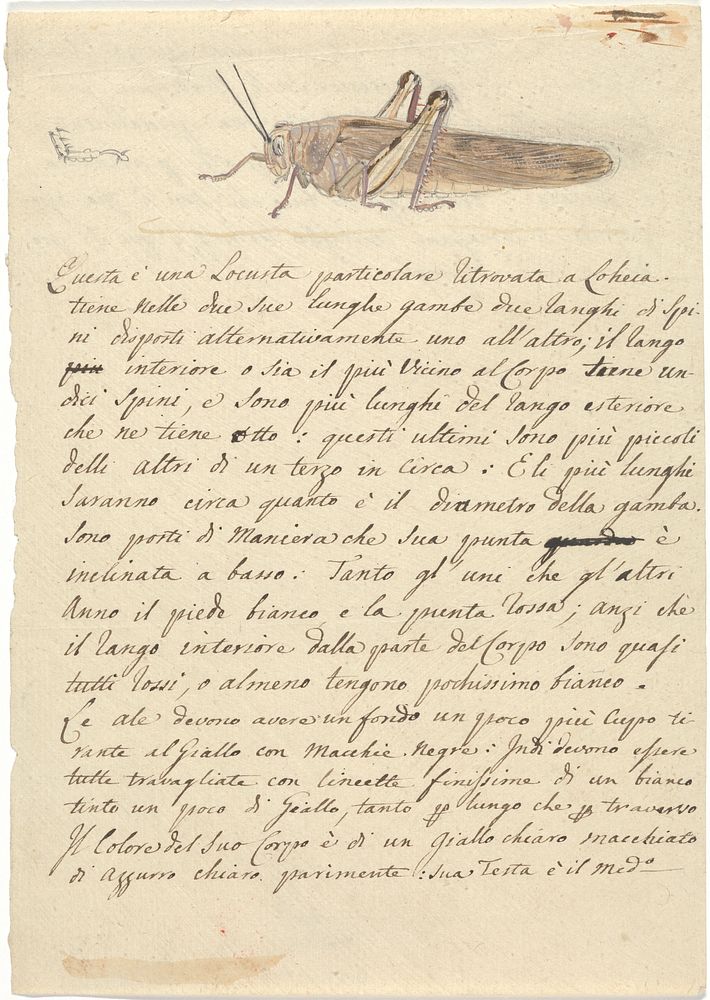 Questa è una Locusta particolare ritrovata a Loheia.
tiene nelle due sue lunghe gambe due ranghi di Spi-
ni disposti alternativamente uno all'altro; il rango
più interiore o sia il più vicino al Corpo tiene un-
dici Spini, e sono più lunghi del rango esteriore
che ne tiene otto: questi ultimi sono più piccoli
delli altri di un terzo in circa: E li più lunghi
saranno circa quanto è il diametro della gamba.
sono posti di Maniera che sua punta guarda è
inclinata a basso: Tanto gl'uni che gl'altri
Anno il piede bianco e la punta rossa; anzi che
il rango interiore dalla parte del Corpo sono quasi
tutti rossi, o almeno tengono pochissimo bianco.
Le ale devono avere un fondo un poco più Cupo ti-
rante al Giallo con Macchie Negre: Indi devono essere
tutte travagliate con lineette finissime di un bianco
tinto un poco di Giallo, tanto p lungo che p traverso
Il Colore del suo Corpo è di un Giallo chiaro macchiato
di Azzurro chiaro parimente: sua Testa è il med.o